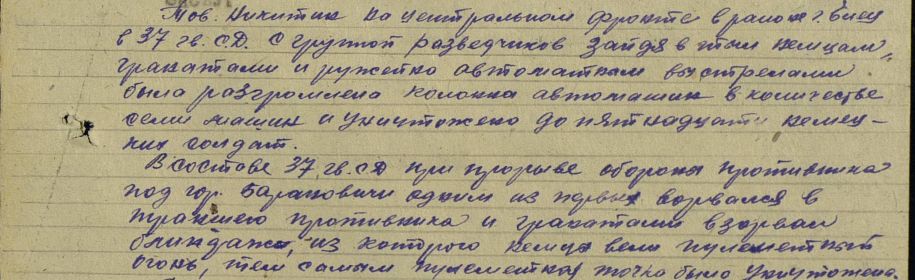 Тов. Никитин на центральном фронте в районе г.
в 37 гв. С.Д. с группой разведчиков зайдя в тыл немцам,
гранатами и ружейно автоматными выстрелами
была разгромлена колонна автомашин в количестве
семи машин и уничтожено до пятнадцати немец-
ких солдат.
В составе 37 гв. СД при прорыве обороны противника
под гор. Барановичи одним из первых ворвался в
траншею противника и гранатами взорвал
блиндаж, из которого немцы вели пулеметный
огонь, тем самым пулеметная точка была уничтожена.